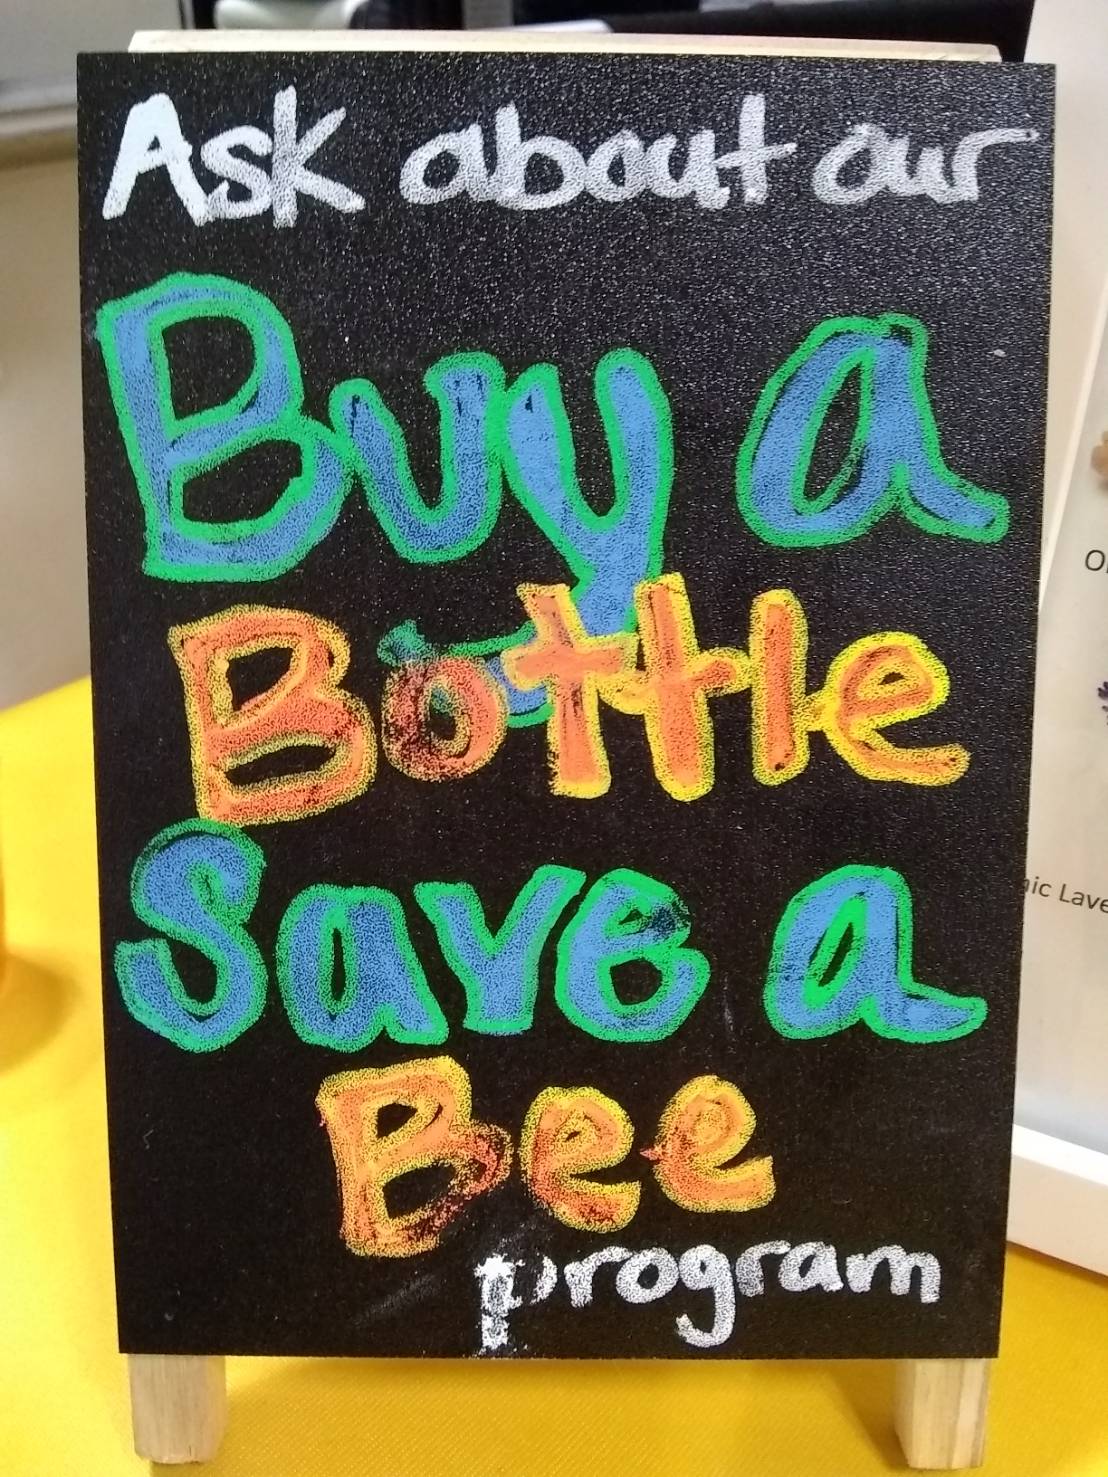 Ask about our
Buy a
Bottle
Save a
Bee
program